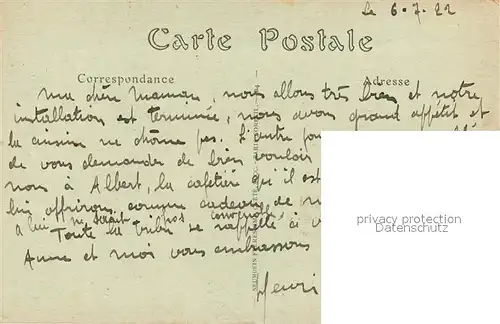 le 6.7.22
Carte Postale
Correspondance
Adresse
ma chère Maman, nous allons très bien et notre
installation est terminée, nous avons grand appétit et
la cuisine ne chôme pas. L'autre
de vous demander de bien vouloir
nous à Albert, la cafetière qu'il est
lui offrirons, comme cadeau de
à lui ne serait pas
Toute la tribu se rappelle à
Anne et moi vous embrassons
Henri
privacy protection
Datenschutz